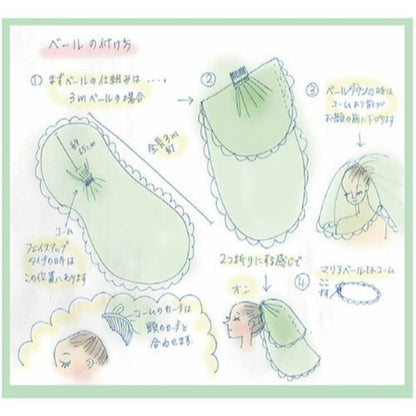 ベールの付け方
① まずベールの仕組みは・・・・
3mベールの場合
約
65cm
全長3m
約
コーム
フェイスアップ
タイプの時は
この位置にあります
②
③ ベールダウンの時は
コームより前が
お顔の前に下がります
2つ折りにする感じで
オン
④ マリアベールはコーム
ここ
です
コームのカーブは
頭のカーブと
合わせます。